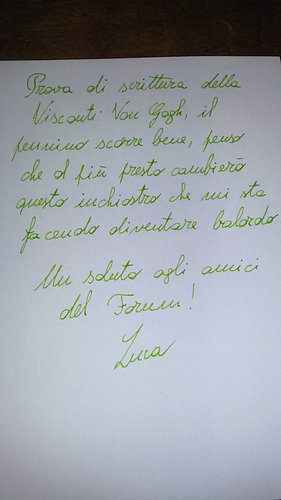 Prova di scrittura della
Visconti Van Gogh, il
pennino scorre bene, penso
che al più presto cambierò
questo inchiostro che mi sta
facendo diventare balordo
Un saluto agli amici
del Forum!
Luca